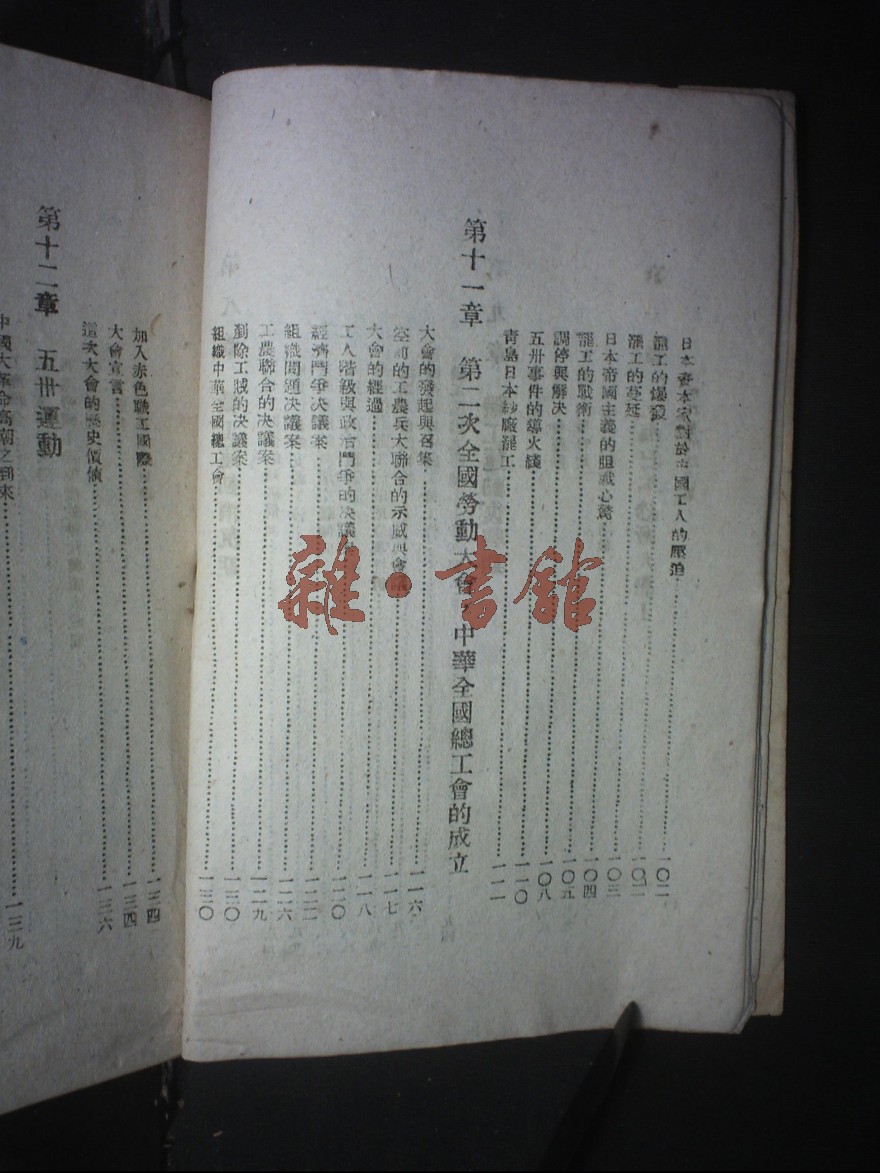 日本資本家對於中國工人的壓迫……一〇二
罷工的爆發……一〇二
罷工的蔓延……一〇二
日本帝國主義的胆戰心驚……一〇三
罷工的戰術……一〇四
調停與解決……一〇五
五卅事件的導火綫……一〇八
青島日本紗廠罷工……一一〇
第十一章 第二次全國勞動大會 中華全國總工會的成立
大會的發起與召集……一一六
空前的工農兵大聯合的示威與會……一一七
大會的經過……一一八
工人階級與政治鬥爭的決議……一二〇
經濟鬥爭決議案……一二二
組織問題決議案……一二六
工農聯合的決議案……一二九
剷除工賊的決議案……一三〇
組織中華全國總工會……一三〇
加入赤色職工國際……一三四
大會宣言……一三四
這次大會的歷史價值……一三六
第十二章 五卅運動
中國大革命高潮之到來……一三九
雜·書館